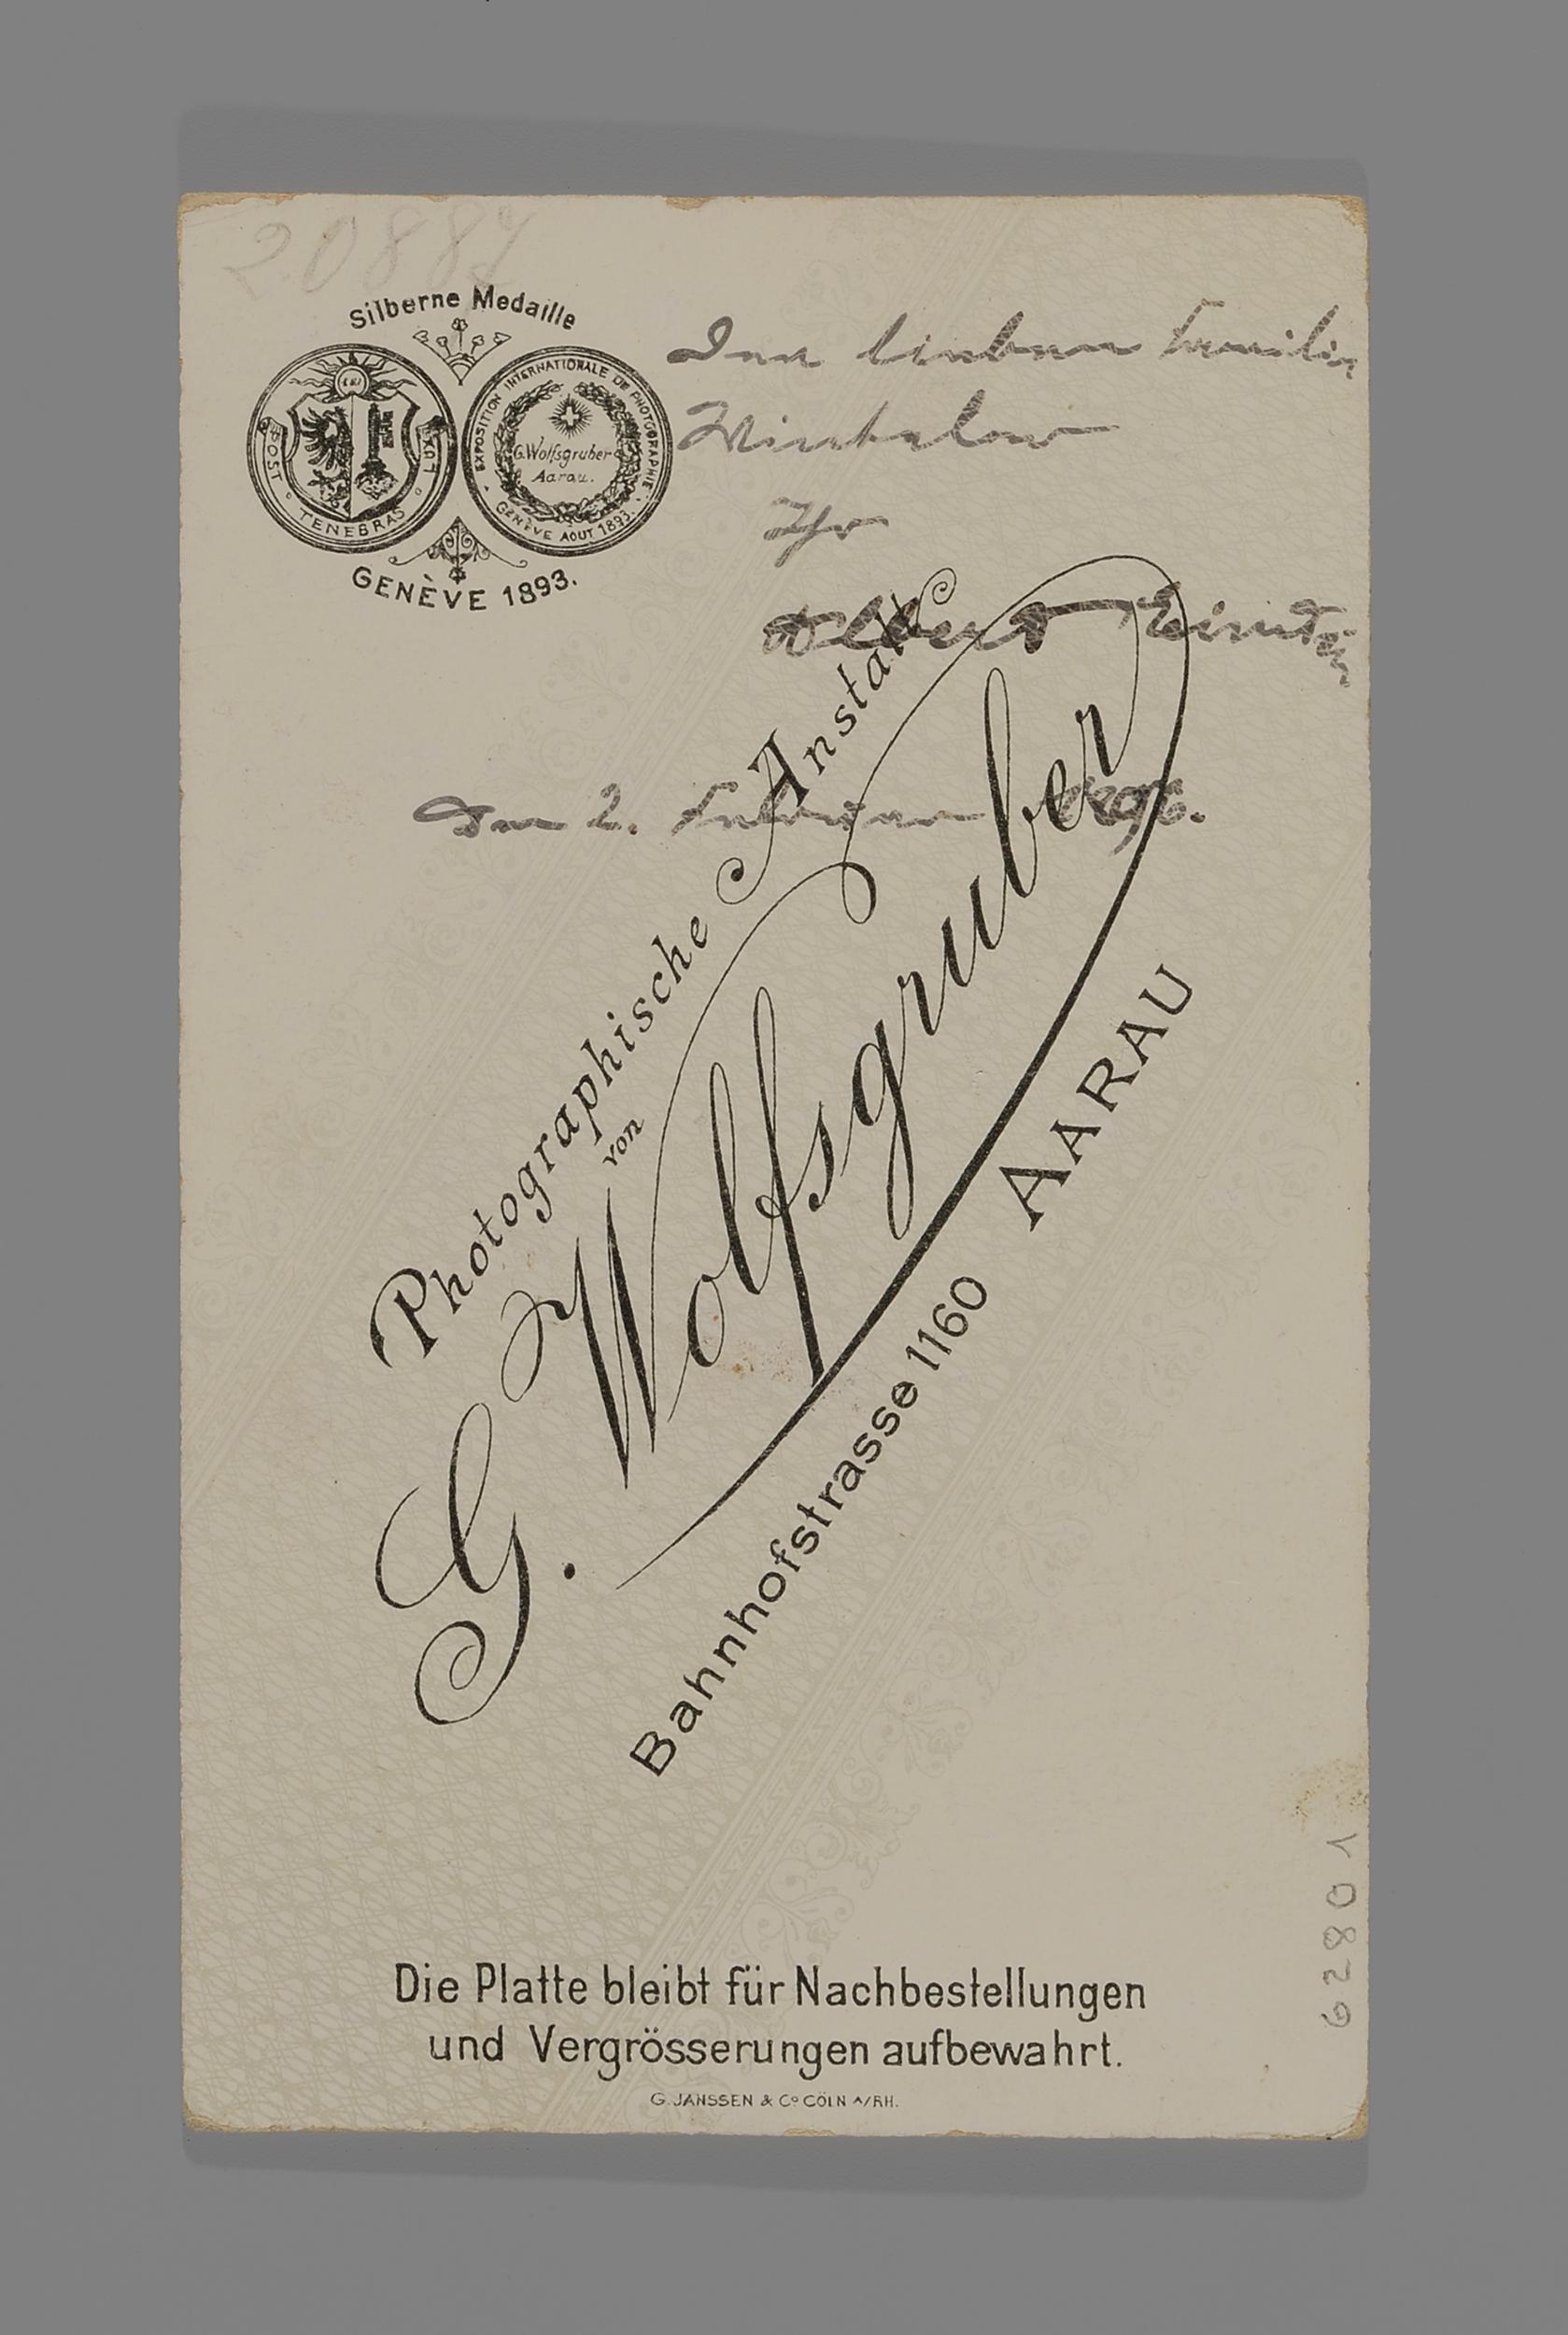 2088
Silberne Medaille
POST TENEBRAS LUX
EXPOSITION INTERNATIONALE DE PHOTOGRAPHIE
G. Wolfsgruber
Aarau.
GENÈVE AOUT 1893.
GENÈVE 1893.
Der lieben Familie
Winteler
Ihr
Albert Einstein
Den 2. Februar 1896.
Photographische Anstalt
von
G. Wolfsgruber
AARAU
Bahnhofstrasse 1160
Die Platte bleibt für Nachbestellungen
und Vergrösserungen aufbewahrt.
G. JANSSEN & Cº CÖLN A/RH.
10829